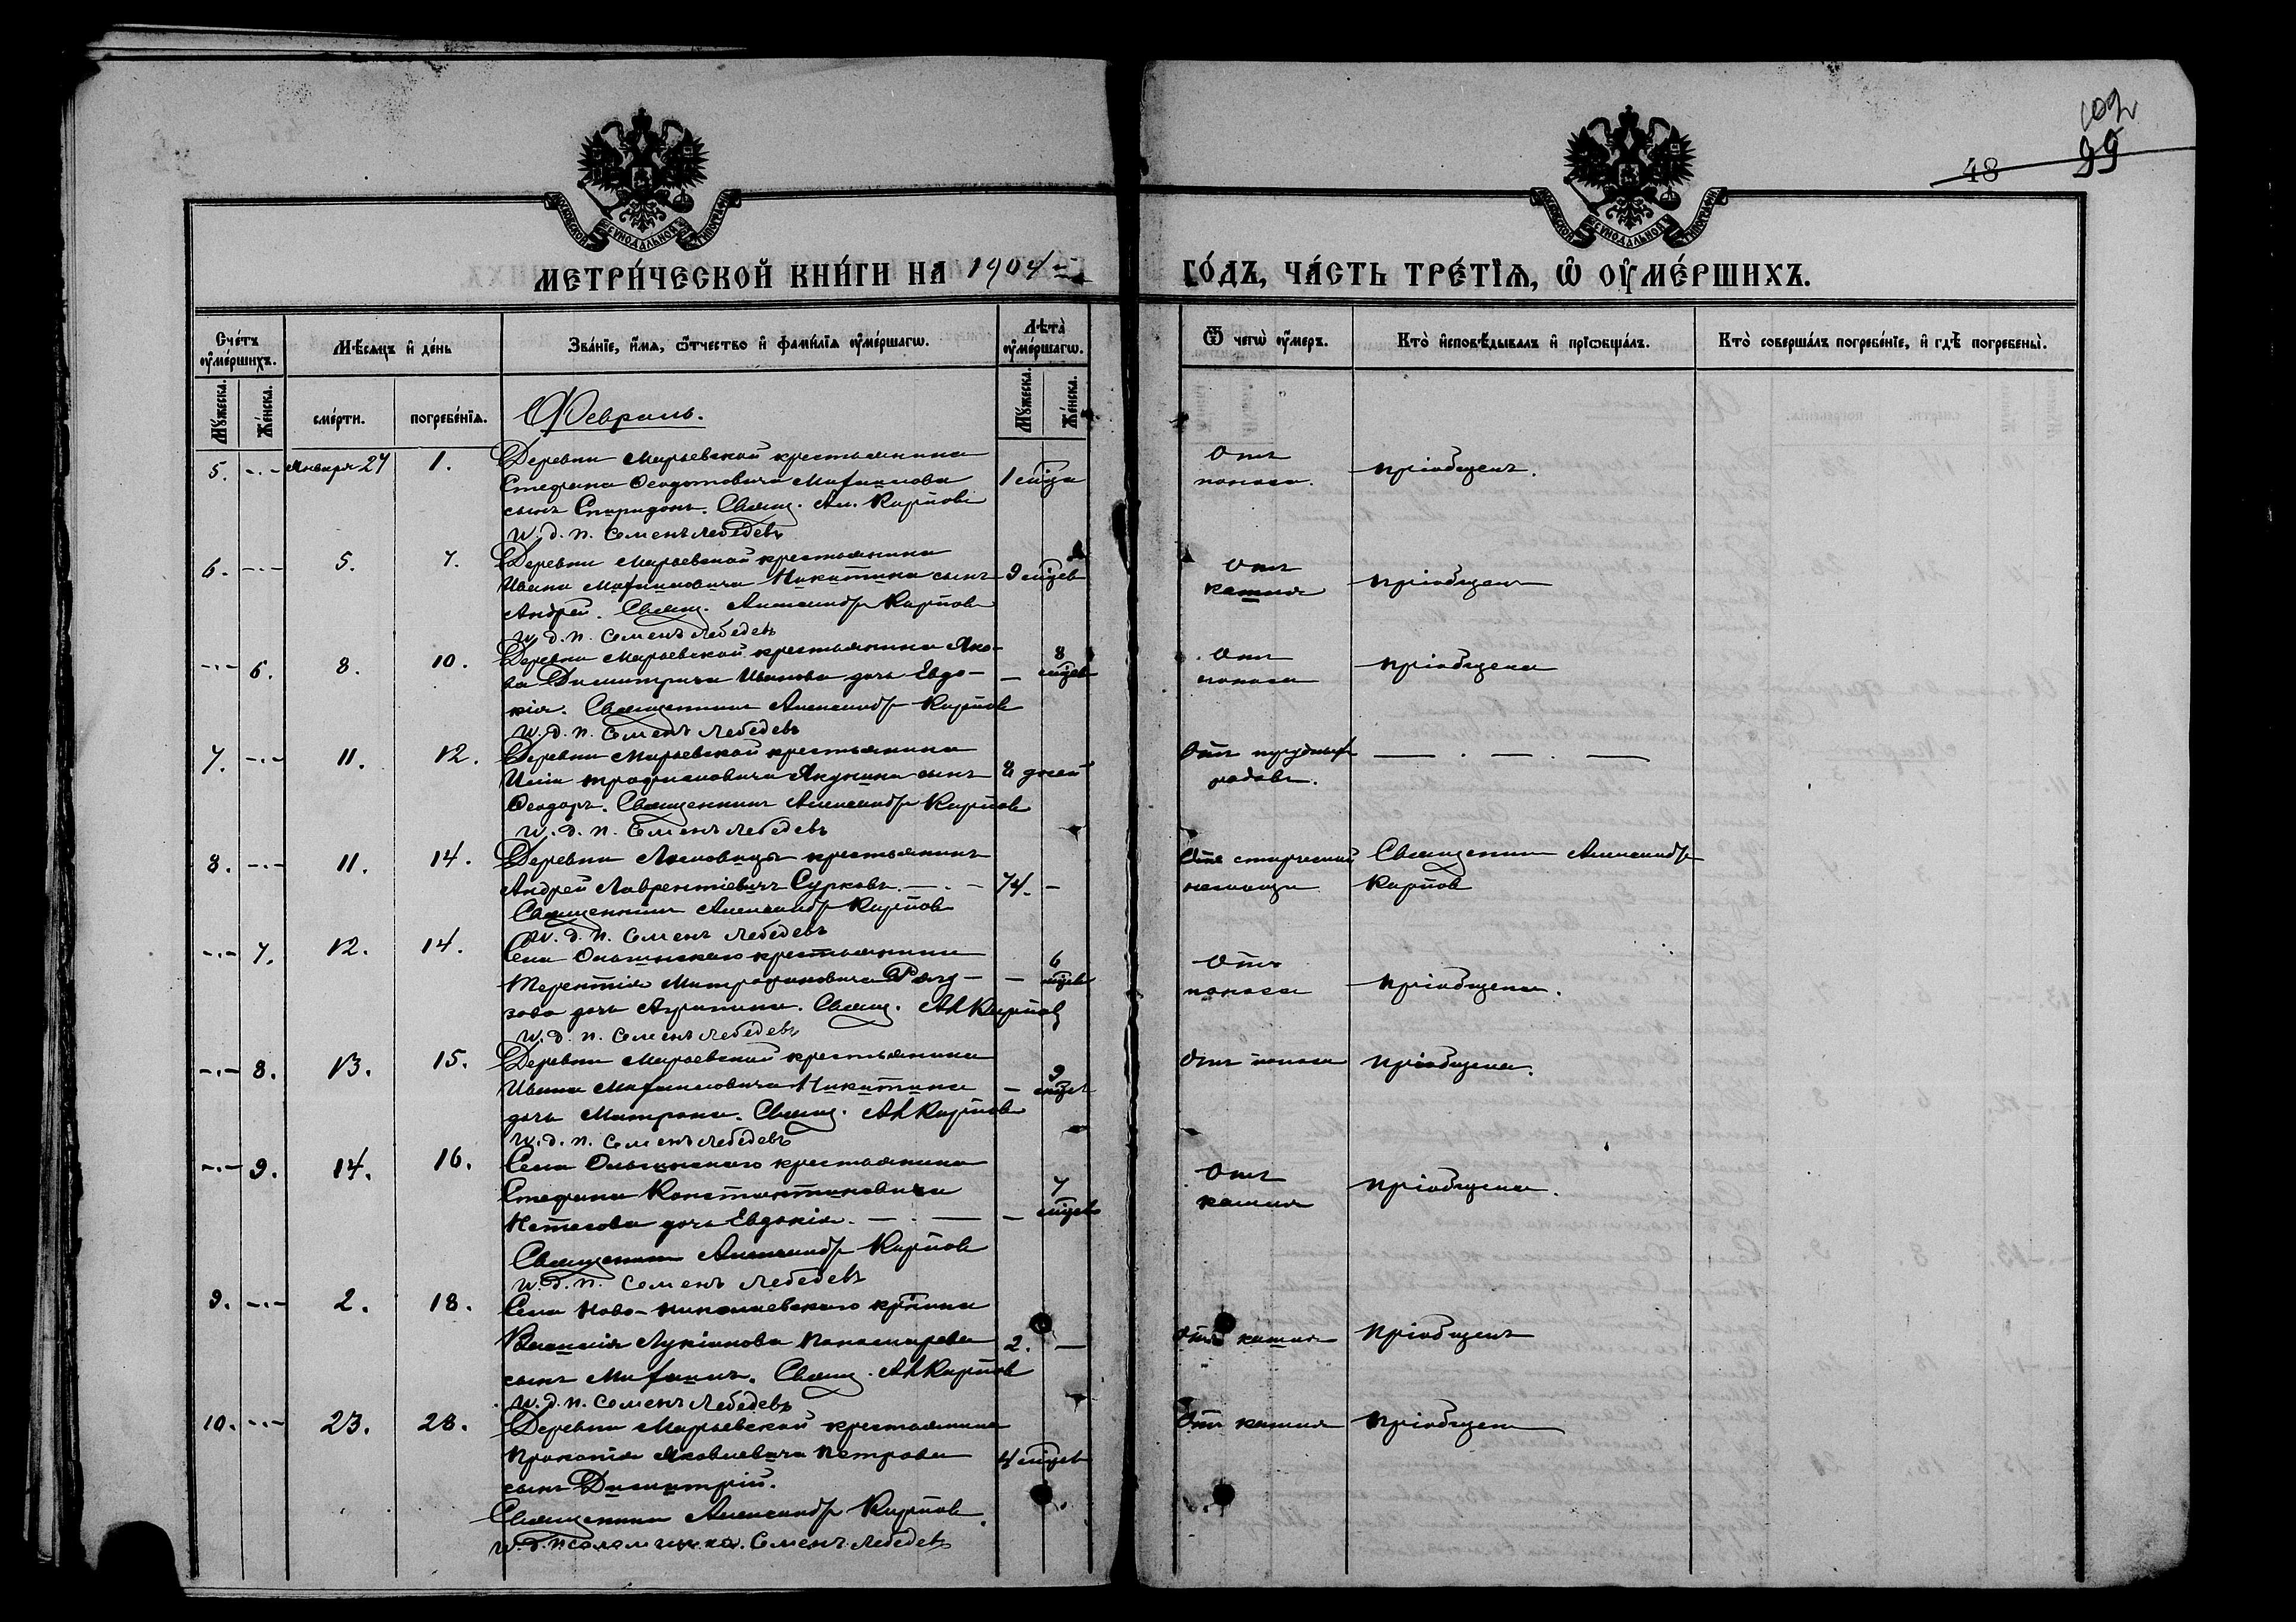 102
99
48
МОСКОВСКОЙ СѴНОДАЛЬНОЙ ТИПОГРАФІИ
МОСКОВСКОЙ СѴНОДАЛЬНОЙ ТИПОГРАФІИ
МЕТРИ́ЧЕСКОЙ КНИ́ГИ НА 1904
ГО́ДЪ, ЧА́СТЬ ТРЕ́ТЇѦ, Ѡ ОУ҆МЕ́РШИХЪ.
Сче́тъ оу҆ме́ршихъ.
Мꙋ́жеска.
Же́нска.
Мѣ́сѧцъ и҆ де́нь
сме́рти.
погребе́нїѧ.
Зва́нїе, и҆́мѧ, ѻ҆́тчество и҆ фами́лїѧ оу҆ме́ршагѡ.
Лѣ́та оу҆ме́ршагѡ.
Мꙋ́жеска.
Же́нска.
Ѿ чегѡ̀ оу҆́меръ.
Кто̀ и҆сповѣ́дывалъ и҆ прїѡбща́лъ.
Кто̀ соверша́лъ погребе́нїе, и҆ гдѣ̀ погребены̀.
Февраль.
5. -.- Января 27 1. Деревни Марьевской крестьянина
Стефана Ѳеодотовича Михаилова 1 мѣсяц
сынъ Спиридонъ. Свящ. Ал. Карповъ
И. д. п. Семенъ Лебедевъ
Отъ поноса. пріобщенъ.
6. -.- 5. 7. Деревни Марьевской крестьянина
Ивана Михаиловича Никитина сынъ 9 мѣсцевъ
Андрей. Свящ. Александръ Карповъ
И. д. п. Семенъ Лебедевъ
Отъ кашля пріобщенъ
-.- 6. 8. 10. Деревни Марьевской крестьянина Яко-
ва Димитріева Иванова дочь Евдо- - 8 мѣсцевъ
кія. Священникъ Александръ Карповъ
И. д. п. Семенъ Лебедевъ
Отъ поноса пріобщена
7. -.- 11. 12. Деревни Марьевской крестьянина
Трофимовича Якунина сынъ 8 дней
Ѳеодоръ. Священникъ Александръ Карповъ
И. д. п. Семенъ Лебедевъ
Отъ трудныхъ родовъ. — . — . —
8. -.- 11. 14. Деревни крестьянинъ
Андрей Лаврентіевичъ Сурковъ. — . — 74. -
Священникъ Александръ Карповъ
И. д. п. Семенъ Лебедевъ
Отъ старческой немощи Священникъ Александръ Карповъ
-.- 7. 12. 14. Села Ольшанскаго крестьянина
Терентія Митрофановича - - 6 мѣсцевъ
зова дочь Агрипина. Свящ. Ал Карповъ
И. д. п. Семенъ Лебедевъ
Отъ поноса пріобщена.
-.- 8. 13. 15. Деревни Марьевской крестьянина
Ивана Михаиловича Никитина - 9 мѣсцевъ
дочь Матрона. Свящ. Ал Карповъ
И. д. п. Семенъ Лебедевъ
Отъ поноса пріобщена.
-.- 9. 14. 16. Села Ольшанскаго крестьянина
Стефана Константиновича
дочь Евдокія. — . — - 7 мѣсцевъ
Священникъ Александръ Карповъ
И. д. п. Семенъ Лебедевъ
Отъ кашля пріобщена.
9. -.- 2. 18. Села Ново-Николаевскаго кр-нина
Василія Лукіанова Пономарева 2. —
сынъ Михаилъ. Свящ. Ал Карповъ
И. д. п. Семенъ Лебедевъ
Отъ кашля пріобщенъ
10. -.- 23. 28. Деревни Марьевской крестьянина
Прокопія Яковлевича Петрова 4 мѣсцевъ
сынъ Димитрій.
Священникъ Александръ Карповъ.
И. д. псаломщика. Семенъ Лебедевъ
Отъ кашля пріобщенъ